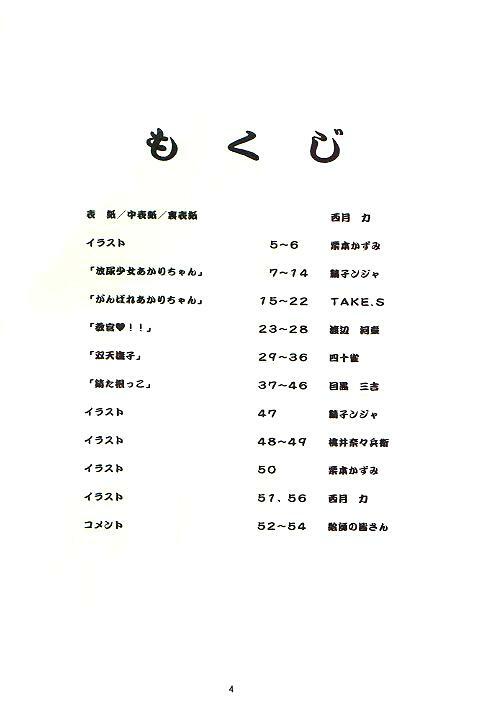 もくじ
表 紙／中表紙／裏表紙 西月 力
イラスト 5～6 栗本かずみ
「波瀾少女あかりちゃん」 7～14 銚子ンジャ
「がんばれあかりちゃん」 15～22 TAKE.S
「教官♥！！」 23～28 渡辺
「双天撫子」 29～36 四十雀
「錆た根っこ」 37～46 目黒 三吉
イラスト 47 銚子ンジャ
イラスト 48～49 桃井奈々兵衛
イラスト 50 栗本かずみ
イラスト 51、56 西月 力
コメント 52～54 絵師の皆さん
4